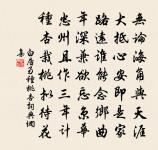 無論海角與天涯
大抵心安即是家
路遠誰能念鄉曲
年深兼欲忘京華
忠州且作三年計
種杏栽桃擬待花
白居易種桃杏詞典網
集